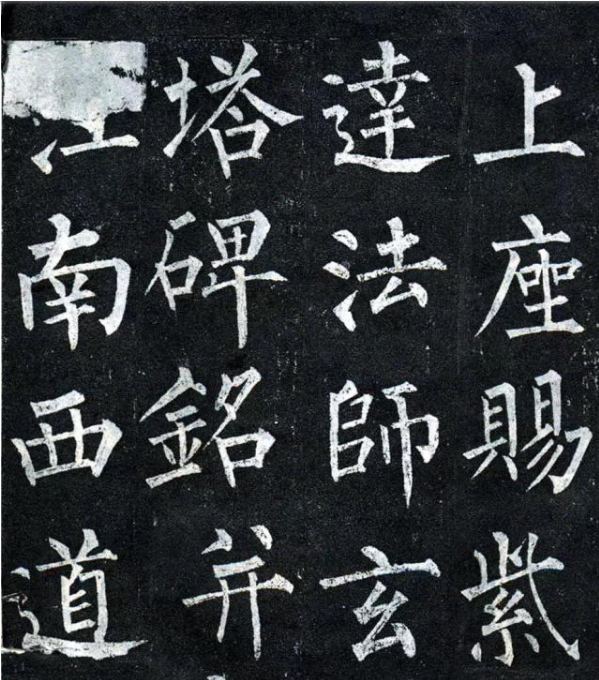 上座賜紫
達法師玄
塔碑銘并
江南西道